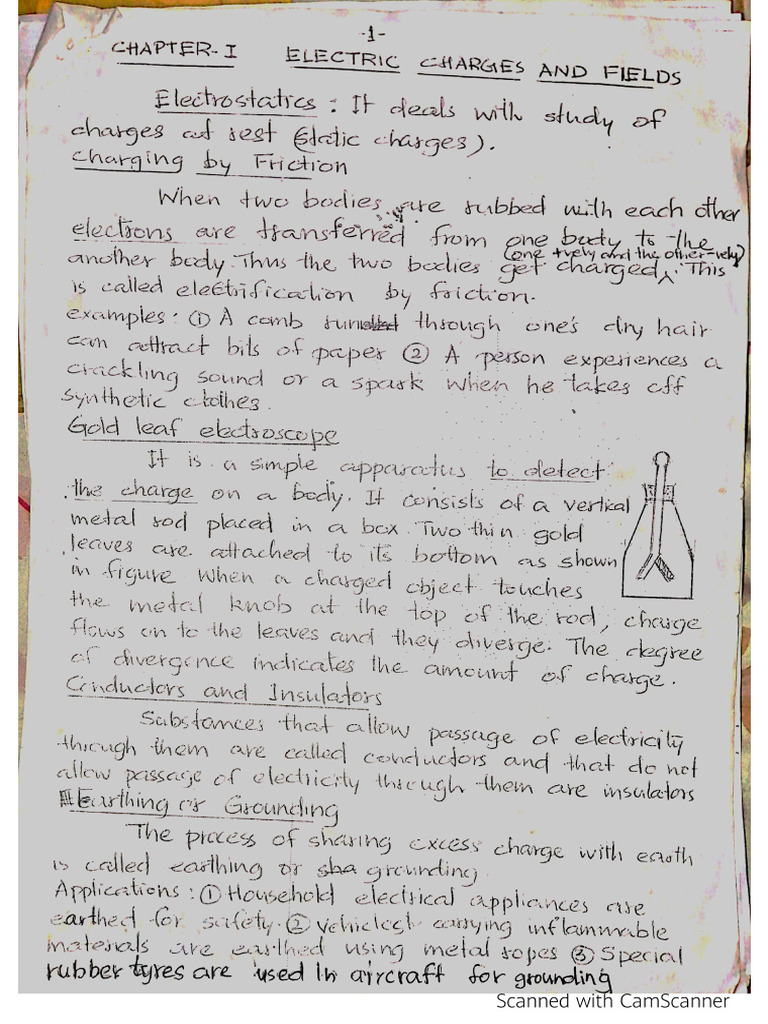 -1-
CHAPTER-I ELECTRIC CHARGES AND FIELDS
Electrostatics : It deals with study of
charges at rest (static charges).
charging by Friction
When two bodies are rubbed with each other
electrons are transferred from one body to the
(one +vely and the other -vely)
another body. Thus the two bodies get charged ^. This
is called electrification by friction.
examples: ① A comb run through one's dry hair
can attract bits of paper ② A person experiences a
crackling sound or a spark when he takes off
synthetic clothes.
Gold leaf electroscope
It is a simple apparatus to detect
the charge on a body. It consists of a vertical
metal rod placed in a box. Two thin gold
leaves are attached to its bottom as shown
in figure when a charged object touches
the metal knob at the top of the rod, charge
flows on to the leaves and they diverge. The degree
of divergence indicates the amount of charge.
Conductors and Insulators
Substances that allow passage of electricity
through them are called conductors and that do not
allow passage of electricity through them are insulators
Earthing or Grounding
The process of sharing excess charge with earth
is called earthing or grounding.
Applications : ① Household electrical appliances are
earthed for safety. ② vehicles carrying inflammable
materials are earthed using metal ropes ③ Special
rubber tyres are used in aircraft for grounding
Scanned with CamScanner